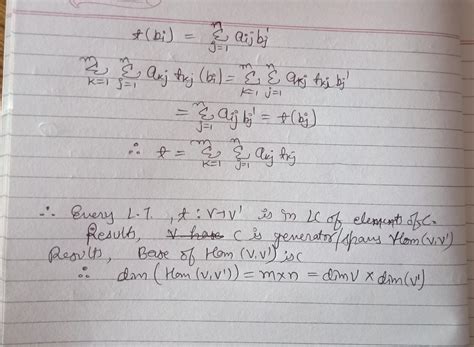 t(bi) = n Σ j=1 aij bj'
m Σ k=1 n Σ j=1 akj tkj (bi) = m Σ k=1 n Σ j=1 akj tkj bj'
= n Σ j=1 aij bj' = t(bj)
∴ t = m Σ k=1 n Σ j=1 akj tkj
∴ Every L.T., t : V→V' is in LC of elements of C.
Results, C is generator/spans Hom(V,V')
Results, Base of Hom (V,V') is C
∴ dim (Hom (V,V')) = m×n = dim V × dim(V')